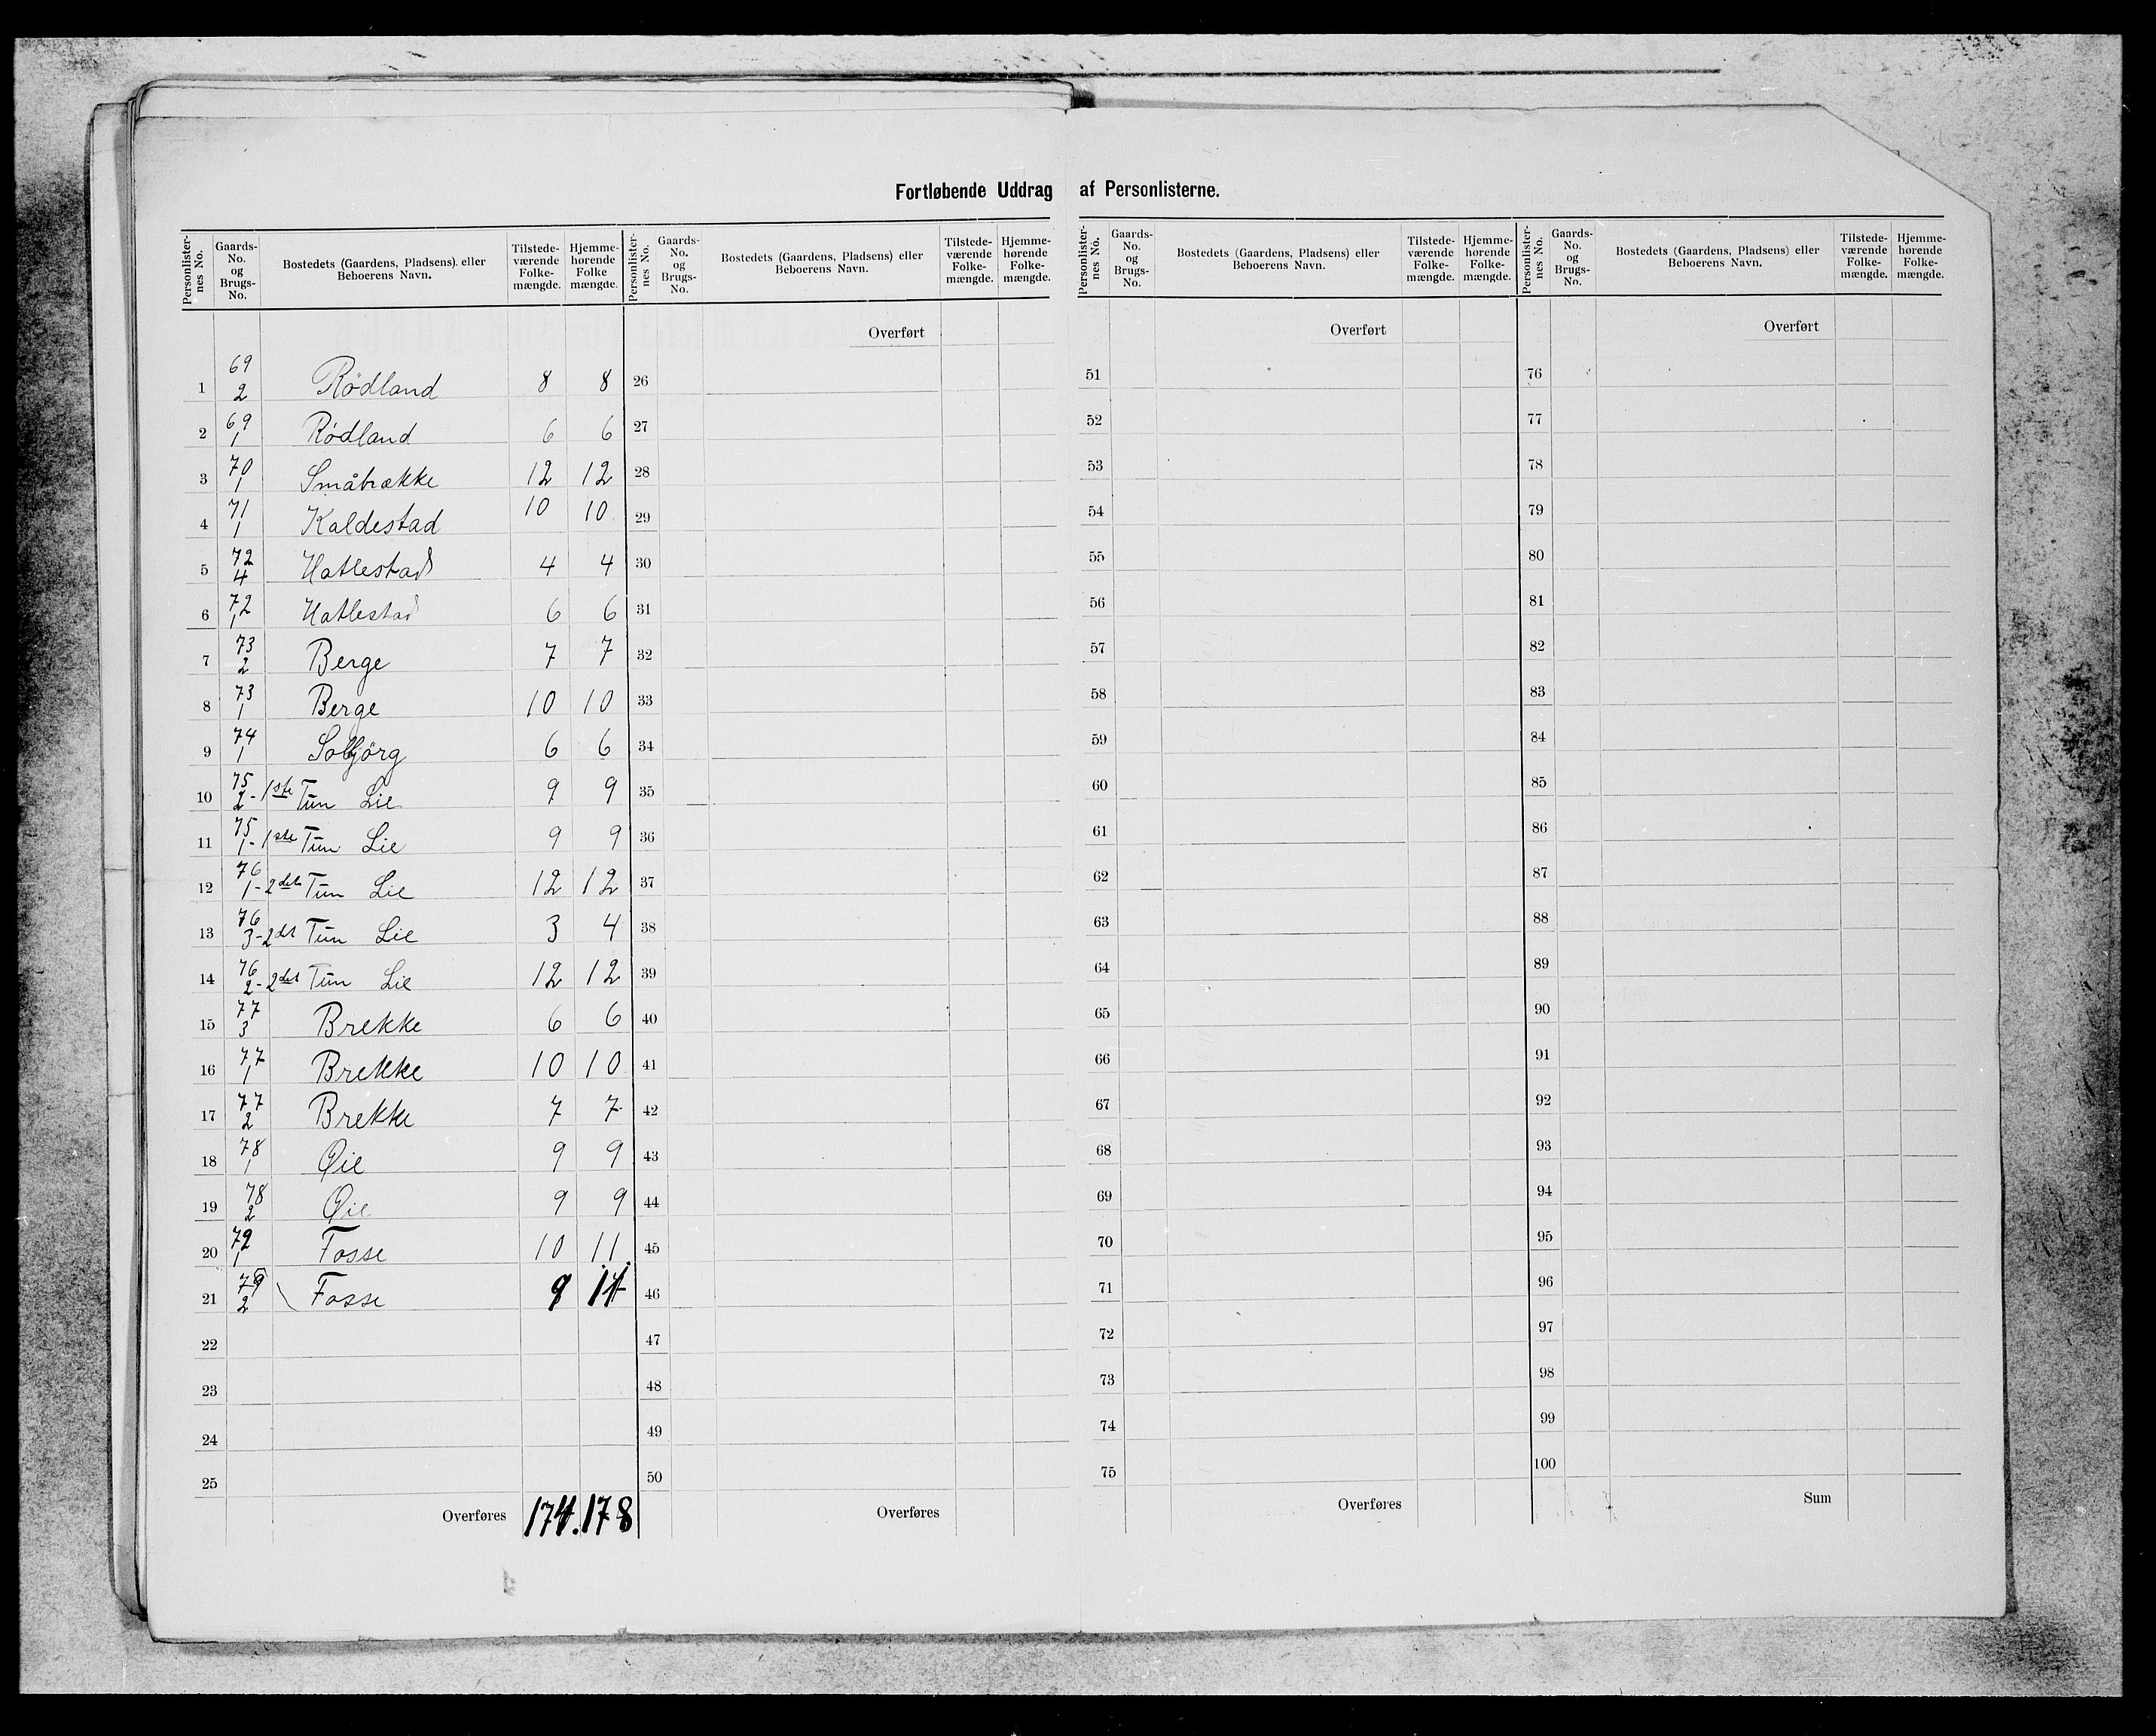 Fortløbende Uddrag af Personlisterne.
Personlister-nes No. Gaards-No. og Brugs-No. Bostedets (Gaardens, Pladsens) eller Beboerens Navn. Tilstede-værende Folke-mængde. Hjemme-hørende Folke mængde.
Personlister-nes No. Gaards-No. og Brugs-No. Bostedets (Gaardens, Pladsens) eller Beboerens Navn. Tilstede-værende Folke-mængde. Hjemme-hørende Folke-mængde.
Personlister-nes No. Gaards-No. og Brugs-No. Bostedets (Gaardens, Pladsens) eller Beboerens Navn. Tilstede-værende Folke-mængde. Hjemme-hørende Folke-mængde.
Personlister-nes No. Gaards-No. og Brugs-No. Bostedets (Gaardens, Pladsens) eller Beboerens Navn. Tilstede-værende Folke-mængde. Hjemme-hørende Folke-mængde.
Overført Overført Overført
1 69 2 Rödland 8 8 26 51 76
2 69 1 Rödland 6 6 27 52 77
3 70 1 Småbrække 12 12 28 53 78
4 71 1 Kaldestad 10 10 29 54 79
5 72 4 Hatlestad 4 4 30 55 80
6 72 1 Hatlestad 6 6 31 56 81
7 73 2 Berge 7 7 32 57 82
8 73 1 Berge 10 10 33 58 83
9 74 1 Solbjörg 6 6 34 59 84
10 75 2 - 1ste Tun Lie 9 9 35 60 85
11 75 1 - 1ste Tun Lie 9 9 36 61 86
12 76 1 - 2det Tun Lie 12 12 37 62 87
13 76 3 - 2det Tun Lie 3 4 38 63 88
14 76 2 - 2det Tun Lie 12 12 39 64 89
15 77 3 Brekke 6 6 40 65 90
16 77 1 Brekke 10 10 41 66 91
17 77 2 Brekke 7 7 42 67 92
18 78 1 Øie 9 9 43 68 93
19 78 2 Øie 9 9 44 69 94
20 79 1 Fosse 10 11 45 70 95
21 79 2 Fosse 9 11 46 71 96
22 47 72 97
23 48 73 98
24 49 74 99
25 50 75 100
Overføres 174. 178 Overføres Overføres Sum